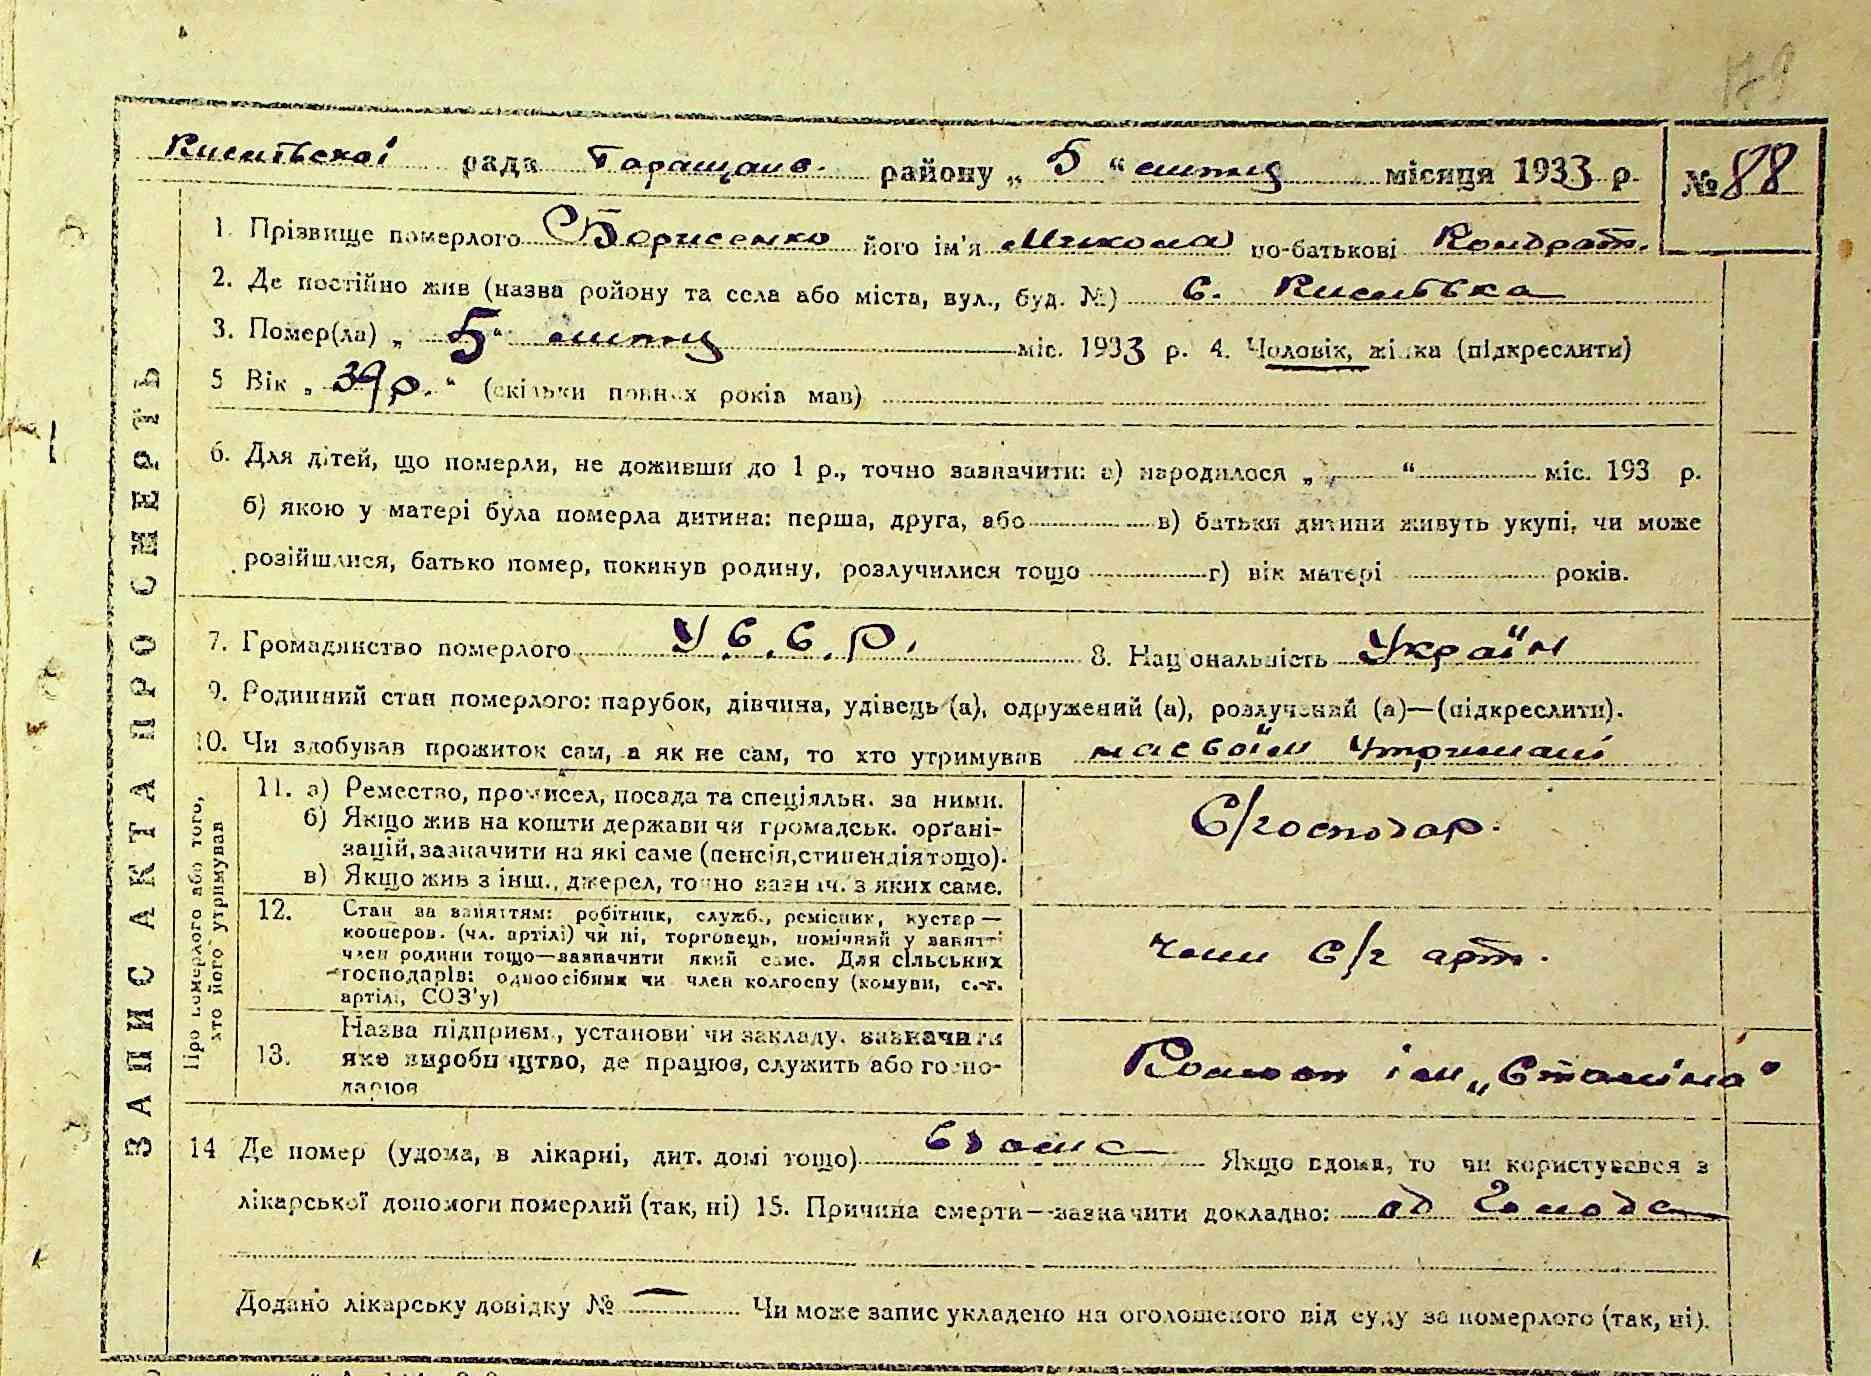 179
Кисилівскої рада Таращанс. району „ 5 “ лютц місяця 1933 р. № 88
1. Прізвище померлого Борисенко його ім'я Микола по-батькові Кондрат.
2. Де постійно жив (назва ройону та села або міста, вул., буд. №) с. Кисилівка
3. Помер(ла) „ 5 “ лютц міс. 1933 р. 4. Чоловік, жінка (підкреслити)
5 Вік „ 39 р. “ (скільки повних років мав)
6. Для дітей, що померли, не доживши до 1 р., точно зазначити: а) народилося „ — “ міс. 193 р.
б) якою у матері була померла дитина: перша, друга, або в) батьки дитини живуть укупі, чи може
розійшлися, батько помер, покинув родину, розлучилися тощо г) вік матері років.
7. Громадянство померлого У.С.С.Р. 8. Національність Україн
9. Родинний стан померлого: парубок, дівчина, удівець (а), одружений (а), розлучений (а)—(підкреслити).
10. Чи здобував прожиток сам, а як не сам, то хто утримував на своїм утримані
ЗАПИС АКТА ПРО СМЕРТЬ
Про померлого або того,
хто його утримував
11. а) Ремество, промисел, посада та спеціяльн. за ними.
б) Якщо жив на кошти держави чи громадськ. органі-
зацій, зазначити на які саме (пенсія, стипендія тощо).
в) Якщо жив з інш., джерел, точно зазнач. з яких саме.
С/господар.
12. Стан за заняттям: робітник, служб., ремісник, кустар—
кооперов. (чл. артілі) чи ні, торговець, помічний у занятті
член родини тощо—зазначити який саме. Для сільських
господарів: одноосібник чи член колгоспу (комуни, с.-г.
артілі, СОЗ'у)
член С/г арт.
Назва підприєм., установи чи закладу, зазначити
13. яке виробництво, де працює, служить або госпо-
дарює
Колгосп ім „Сталіна"
14 Де помер (удома, в лікарні, дит. домі тощо) вдома Якщо вдома, то чи користувався з
лікарської допомоги померлий (так, ні) 15. Причина смерти—зазначити докладно: од голода
Додано лікарську довідку № — Чи може запис укладено на оголошеного від суду за померлого (так, ні).